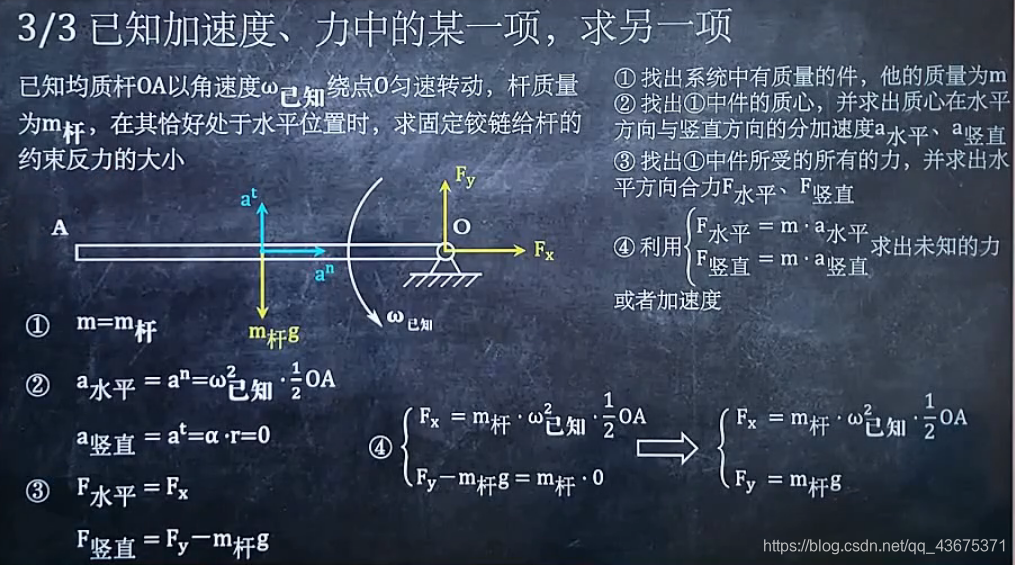 3/3 已知加速度、力中的某一项，求另一项
已知均质杆OA以角速度ω已知绕点O匀速转动，杆质量
为m杆，在其恰好处于水平位置时，求固定铰链给杆的
约束反力的大小
① 找出系统中有质量的件，他的质量为m
② 找出①中件的质心，并求出质心在水平
方向与竖直方向的分加速度a水平、a竖直
③ 找出①中件所受的所有的力，并求出水
平方向合力F水平、F竖直
④ 利用{F水平 = m · a水平
F竖直 = m · a竖直
求出未知的力
或者加速度
A
aᵗ
aⁿ
m杆g
Fy
O
Fx
ω已知
① m=m杆
② a水平 = aⁿ=ω²已知 · 1/2 OA
a竖直 = aᵗ=α·r=0
③ F水平 = Fx
F竖直 = Fy−m杆g
④ {Fx = m杆 · ω²已知 · 1/2 OA
Fy−m杆g = m杆 · 0
{Fx = m杆 · ω²已知 · 1/2 OA
Fy = m杆g
https://blog.csdn.net/qq_43675371